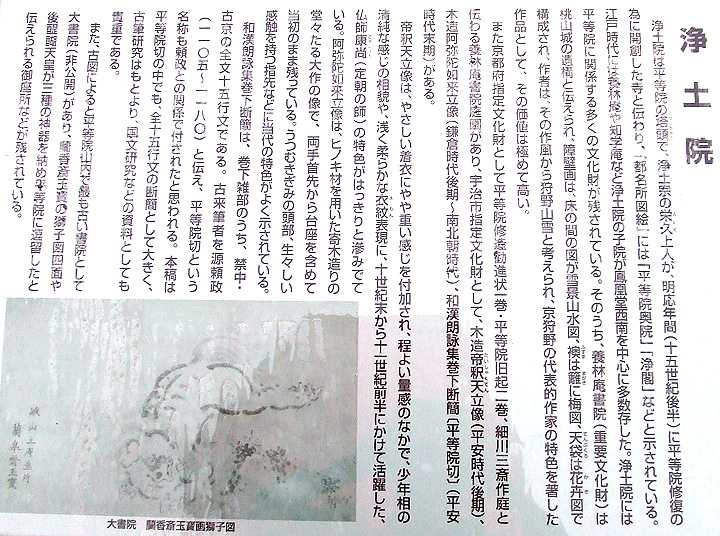 浄土院
浄土院は平等院の塔頭で、浄土宗の栄久上人が、明応年間(十五世紀後半)に平等院修復の
為に開創した寺と伝わり、「都名所図絵」には「平等院奥院」「浄閣」などと示されている。
江戸時代には養林庵や知学庵など浄土院の子院が鳳凰堂西南を中心に多数存した。浄土院には
平等院に関係する多くの文化財が残されている。そのうち、養林庵書院(重要文化財)は
桃山城の遺構と伝えられ、障壁画は、床の間の図が雪景山水図、襖は籬に梅図、天袋は花卉図で
構成され、作者は、その作風から狩野山雪と考えられ、京狩野の代表的作家の特色を著した
作品として、その価値は極めて高い。
また京都府指定文化財として平等院修造勧進状一巻・平等院旧起一巻、細川三斎作庭と
伝わる養林庵書院庭園があり、宇治市指定文化財として、木造帝釈天立像(平安時代後期)、
木造阿弥陀如来立像(鎌倉時代後期~南北朝時代)、和漢朗詠集巻下断簡(平等院切)(平安
時代末期)がある。
帝釈天立像は、やさしい着衣にやや重い感じを付加され、程よい量感のなかで、少年相の
清純な感じの相貌や、浅く柔らかな衣紋表現に、十世紀末から十一世紀前半にかけて活躍した、
仏師康尚(定朝の師)の特色がはっきりと滲みでて
いる。阿弥陀如来立像は、ヒノキ材を用いた寄木造りの
堂々たる大作の像で、両手首先から台座を含めて
当初のまま残っている。うつむきぎみの頭部、生々しい
感触を持つ指先などに当代の特色がよく示されている。
和漢朗詠集巻下断簡は、巻下雑部のうち、禁中・
古京の全文十五行文である。古来筆者を源頼政
(一一〇五~一一八〇)と伝え、平等院切という
名称も頼政との関係で付されたと思われる。本稿は
平等院切の中でも、全十五行文の断簡として大きく、
古筆研究はもとより、国文研究などの資料としても
貴重である。
また、古図によると平等院山内で最も古い書院として
大書院(非公開)があり、蘭香斎玉寶の獅子図四面や
後醍醐天皇が三種の神器を納め平等院に逗留したと
伝えられる御座所などが残されている。
大書院 蘭香斎玉寶画獅子図